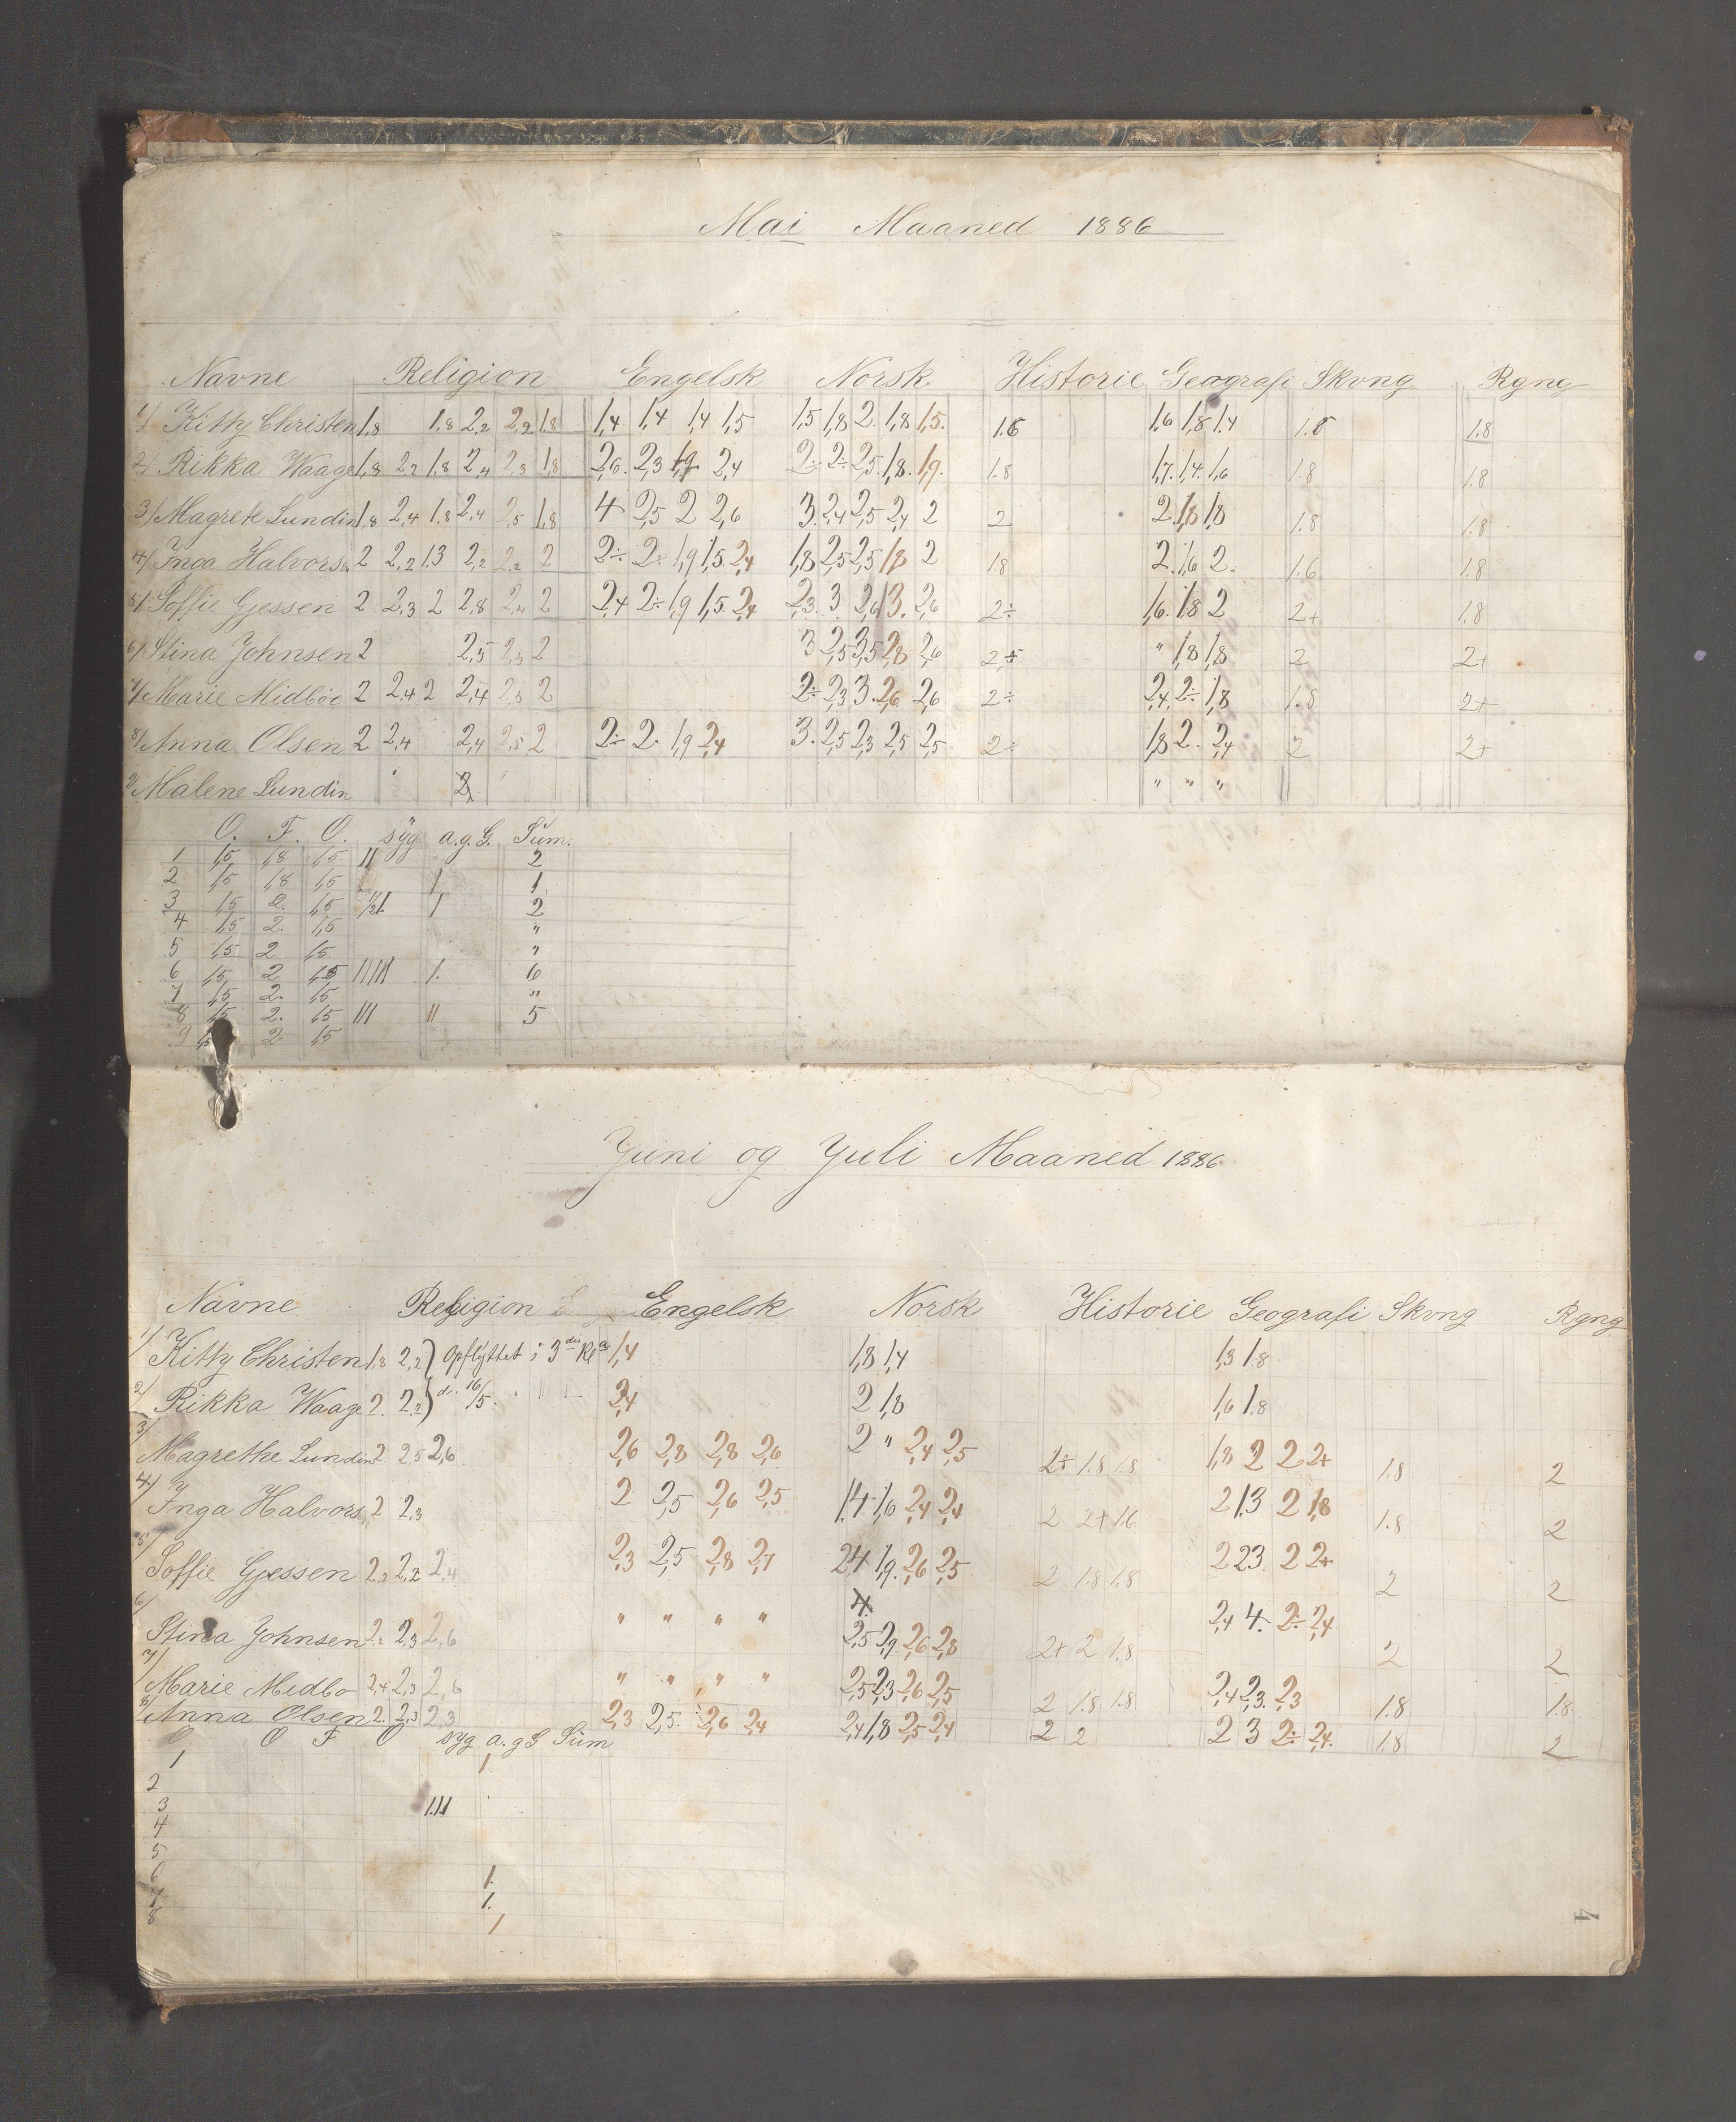 Mai Maaned 1886
Navne Religion Engelsk Norsk Historie Geografi Skvng Rgng
1/ Kitty Christen 1,8 1,8 2,2 2,2 1,8 1,4 1,4 1,4 1,5 1,5 1,8 2. 1,8 1,5. 1.6 1,6 1,8 1,4 1.8 1.8
2/ Rikka Waage 1,8 2,2 1,8 2,4 2,3 1,8 2,6. 2,3 1,9 2,4 2÷ 2÷ 2,5 1,8. 1,9. 1.8 1,7. 1,4. 1,6 1.8 1.8
3/ Magrete Lundin 1,8 2,4 1,8 2,4 2,5 1,8 4 2,5 2 2,6 3. 2,4 2,5 2,4 2 2 2 1,8 1,8 1.8 1.8
4/ Inga Halvorsn 2 2,2 1.3 2,2 2,2 2 2÷ 2÷ 1,9 1,5. 2,4 1,8 2,5 2,5 1,8 2 1.8 2. 1,6 2. 1.6 1.8
5/ Soffie Gjessen 2 2,3 2 2,8 2,4 2 2,4 2÷ 1,9 1,5. 2,4 2,3. 3 2,6 3. 2,6 2÷ 1,6. 1,8 2 2+ 1.8
6/ Stina Johnsen 2 2,5 2,3 2 3 2,5 3,5 2,8 2,6 " 1,8 1,8 2 2+
7/ Marie Midböe 2 2,4 2 2,4 2,3 2 2÷ 2,3 3. 2,6 2,6 2÷ 2,4. 2÷ 1,8 1.8 2+
8/ Anna Olsen 2 2,4 2,4 2,5 2 2÷ 2. 1,9 2,4 3. 2,5 2,3 2,5 2,5 2÷ 1,8 2. 2,4 2 2+
9/ Malene Lundin " " "
O. F. O. syg a.g.G. Sum.
1 1,5 1,8 1,5 11 2
2 1,5 1,8 1,5 1 1
3 1,5 2. 1,5 1 2
4 1,5 2. 1,5 "
5 1,5 2 1,5 "
6 1,5 2 1,5 11111 1. 6
7 1,5 2. 1,5 "
8 1,5 2. 1,5 111 11 5
9 1,5 2 1,5
Juni og Juli Maaned 1886
Navne Religion Engelsk Norsk Historie Geografi Skvng Rgng
1/ Kitty Christen 1,8 2,2 } Opflyttet i 3die Kl 1,4 1,8 1,4 1,3 1.8
2/ Rikka Waage 2. 2,2 } d. 16/5. 2,4 2 1,8 1,6 1.8
3/ Magrethe Lundin 2 2,5 2,6 2,6 2,8 2,8 2,6 2 " 2,4 2,5 2+ 1.8 1.8 1,8 2 2 2+ 1.8 2
4/ Inga Halvorsn 2 2,3 2 2,5 2,6 2,5 1.4 1,6 2,4 2,4 2 2+ 1.6 2 1.3 2 1,8 1.8 2
5/ Soffie Gjessen 2,2 2,2 2,4 2,3 2,5 2,8 2,7 2,4 1,9. 2,6 2,5 2 1.8 1,8 2 2,3 2 2+ 2 2
6/ Stina Johnsen 2,2 2,3 2,6 " " " " 2,5 2,9. 2,6 2,8 2+ 2 1,8 2,4 4. 2÷ 2,4 2 2
7/ Marie Midbo 2,4 2,3 2,6 " " " " 2,5 2,3 2,6 2,5 2 1.8 1.8 2,4 2,3. 2,3 1.8 1.8
8/ Anna Olsen 2. 2,3 2,3 2,3 2,5. 2,6 2,4 2,4 1,8 2,5 2,4 2 2 2 3 2÷ 2,4. 1.8 2
O F O syg a.gG Sum
1 1
2
3 1111
4
5
6 1.
7 1.
8 1
4